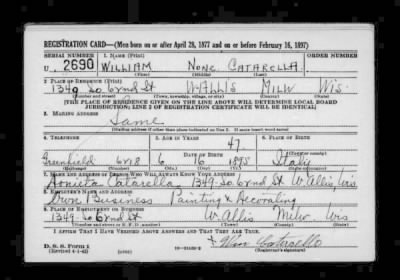 REGISTRATION CARD—(Men born on or after April 28, 1877 and on or before February 16, 1897)
SERIAL NUMBER 1. NAME (Print) ORDER NUMBER
U 2690 WILLIAM None CATARELLA
(First) (Middle) (Last)
2. PLACE OF RESIDENCE (Print)
1349 So 62nd St W-ALLIS MILW WIS.
(Number and street) (Town, township, village, or city) (County) (State)
[THE PLACE OF RESIDENCE GIVEN ON THE LINE ABOVE WILL DETERMINE LOCAL BOARD
JURISDICTION; LINE 2 OF REGISTRATION CERTIFICATE WILL BE IDENTICAL]
3. MAILING ADDRESS
Same
(Mailing address if other than place indicated on line 2. If same insert word same)
4. TELEPHONE 5. AGE IN YEARS 6. PLACE OF BIRTH
47
DATE OF BIRTH
Greenfield 6 16 1895 Italy
(Exchange) (Number) (Mo.) (Day) (Yr.) (State or country)
7. NAME AND ADDRESS OF PERSON WHO WILL ALWAYS KNOW YOUR ADDRESS
Catarella 1349 So. 62nd St W. Allis Wis
8. EMPLOYER'S NAME AND ADDRESS
Own Business Painting & Decorating
9. PLACE OF EMPLOYMENT OR BUSINESS
1349-So 62nd St W. Allis Milw. Wis
(Number and street or R. F. D. number) (Town) (County) (State)
I AFFIRM THAT I HAVE VERIFIED ABOVE ANSWERS AND THAT THEY ARE TRUE.
D. S. S. Form 1
(Revised 4-1-42) (over) Wm Catarella
(Registrant's signature)